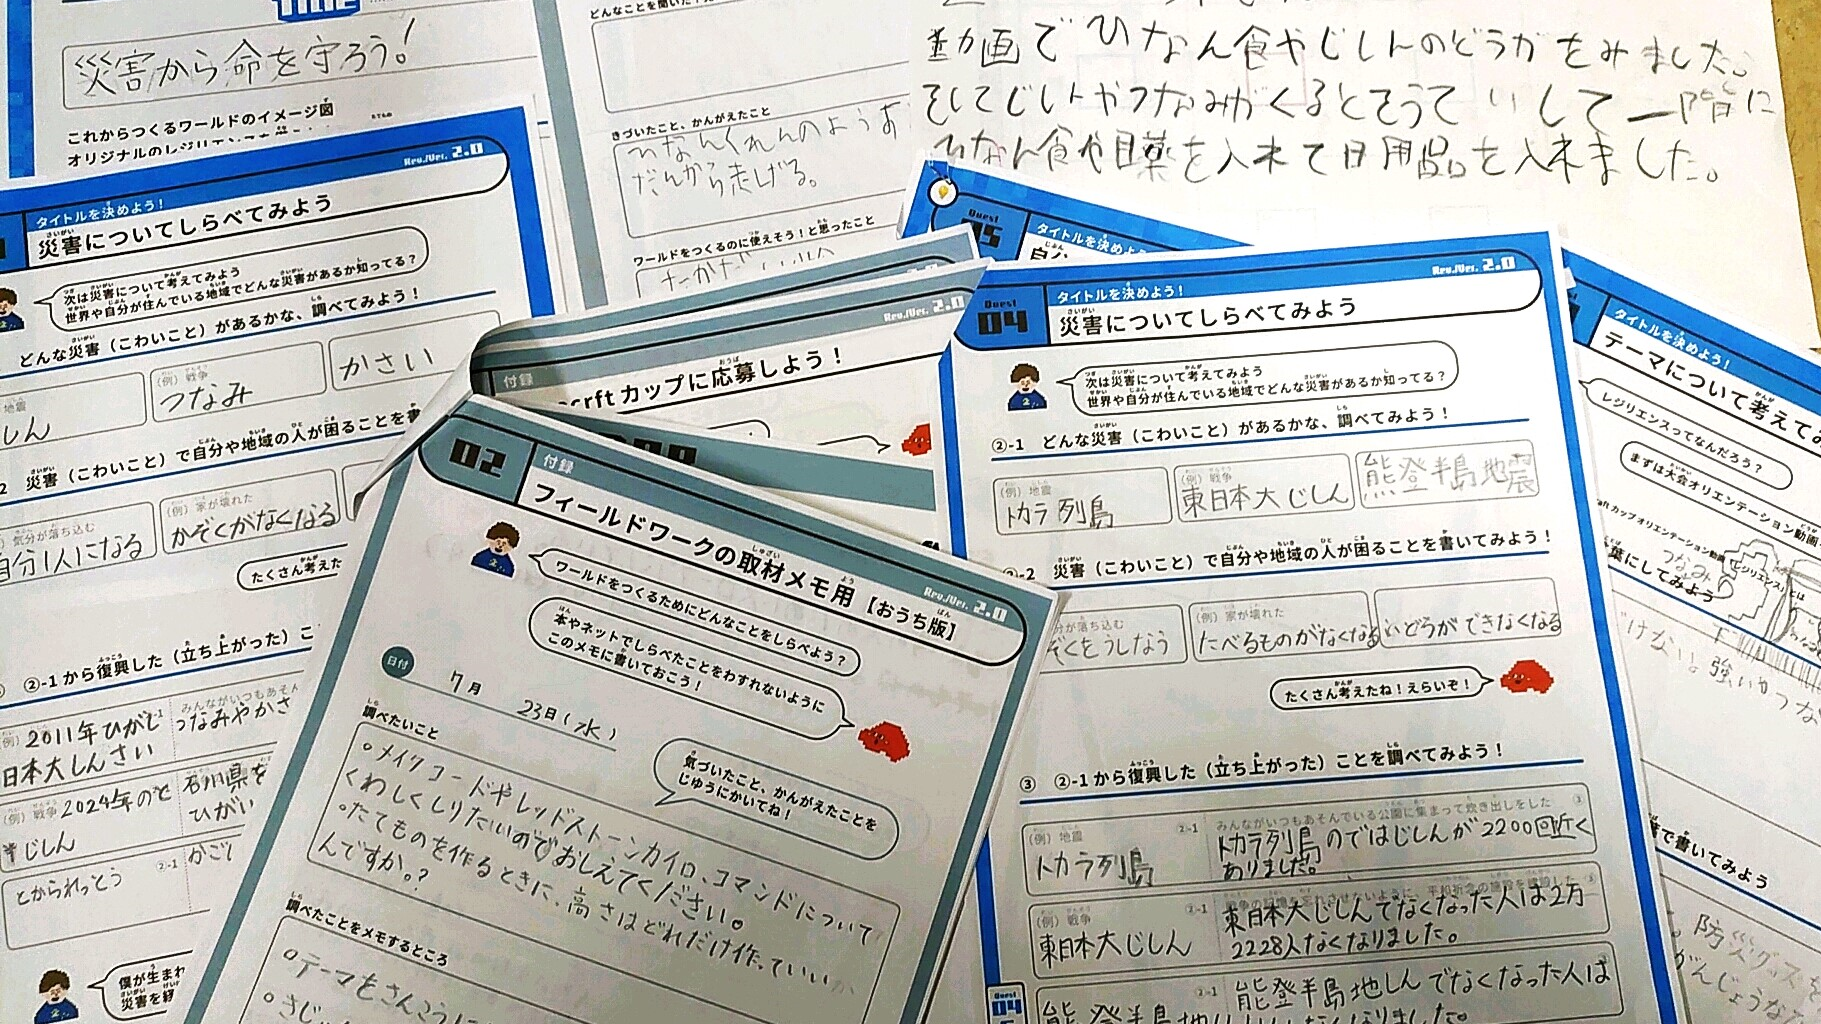 TITLE
災害から命を守ろう!
これからつくるワールドのイメージ図
きづいたこと、かんがえたこと
ひなんくれんのようす
だんから走げる。
ワールドをつくるのに使えそう!と思ったこと
動画でひなん食やじしんのどうがをみました。
ひなん食や目薬を入れて日用品を入れました。
Rev./Ver. 2.0
タイトルを決めよう!
災害についてしらべてみよう
次は災害について考えてみよう
世界や自分が住んでいる地域でどんな災害があるか知ってる?
どんな災害(こわいこと)があるかな、調べてみよう!
地震
しん
(例)戦争
つなみ
かさい
災害(こわいこと)で自分や地域の人が困ることを書
気分が落ち込む
自分1人になる
(例)家が壊れた
かぞくがなくなる
たくさん考えた
②-1から復興した(立ち上がった)こ
みんながいつもあそん
2011年ひがし
日本大しんさい
つなみやかさ
(例)戦争
2024年のと
じしん
石川県を
ひがい
とかられっとう
②-1
僕が生まれ
災害を経
付録
Rev./Ver. 2.0
crftカップに応募しよう!
02
付録
フィールドワークの取材メモ用【おうち版】
Rev./Ver. 2.0
ワールドをつくるためにどんなことをしらべよう?
本やネットでしらべたことをわすれないように
このメモに書いておこう!
日付
7月
23日(水)
調べたいこと
気づいたこと、かんがえたことを
じゆうにかいてね!
。メイクコードやレッドストーンカイロ、コマンドについて
くわしくしりたいのでおしえてください。
。たてものを作るときに、高さはどれだけ作っていい
んですか。?
調べたことをメモするところ
。テーマをさんこうに
Quest
05
タイトルを決めよ
Quest
04
タイトルを決めよう!
災害についてしらべてみよう
Rev./Ver. 2.0
次は災害について考えてみよう
世界や自分が住んでいる地域でどんな災害があるか知ってる?
②-1 どんな災害(こわいこと)があるかな、調べてみよう!
(例)地震
トカラ列島
(例)戦争
東日本大じしん
能登半島地震
②-2 災害(こわいこと)で自分や地域の人が困ることを書いてみよう!
分が落ち込む
ぞくをうしなう
(例)家が壊れた
たべるものがなくなる
いどうができなくなる
たくさん考えたね!えらいぞ!
③ ②-1から復興した(立ち上がった)ことを調べてみよう!
(例)地震 ②-1
トカラ列島
みんながいつもあそんでいる公園に集まって炊き出しをした ③
トカラ列島のではじしんが2200回近く
ありました。
(例)戦争 ②-1
東日本大じしん
東日本大じしんでなくなった人は2万
2228人なくなりました。
②-1
能登半島地しんでなくなった人は
Quest
04
タイトルを決めよう!
テーマについて考えてみ
レジリエンスってなんだろう?
まずは大会オリエンテーション動画
aft カップオリエンテーション動画
つなみ
葉にしてみよう
けない。強いかつな
て書いてみよう
防災グッズを